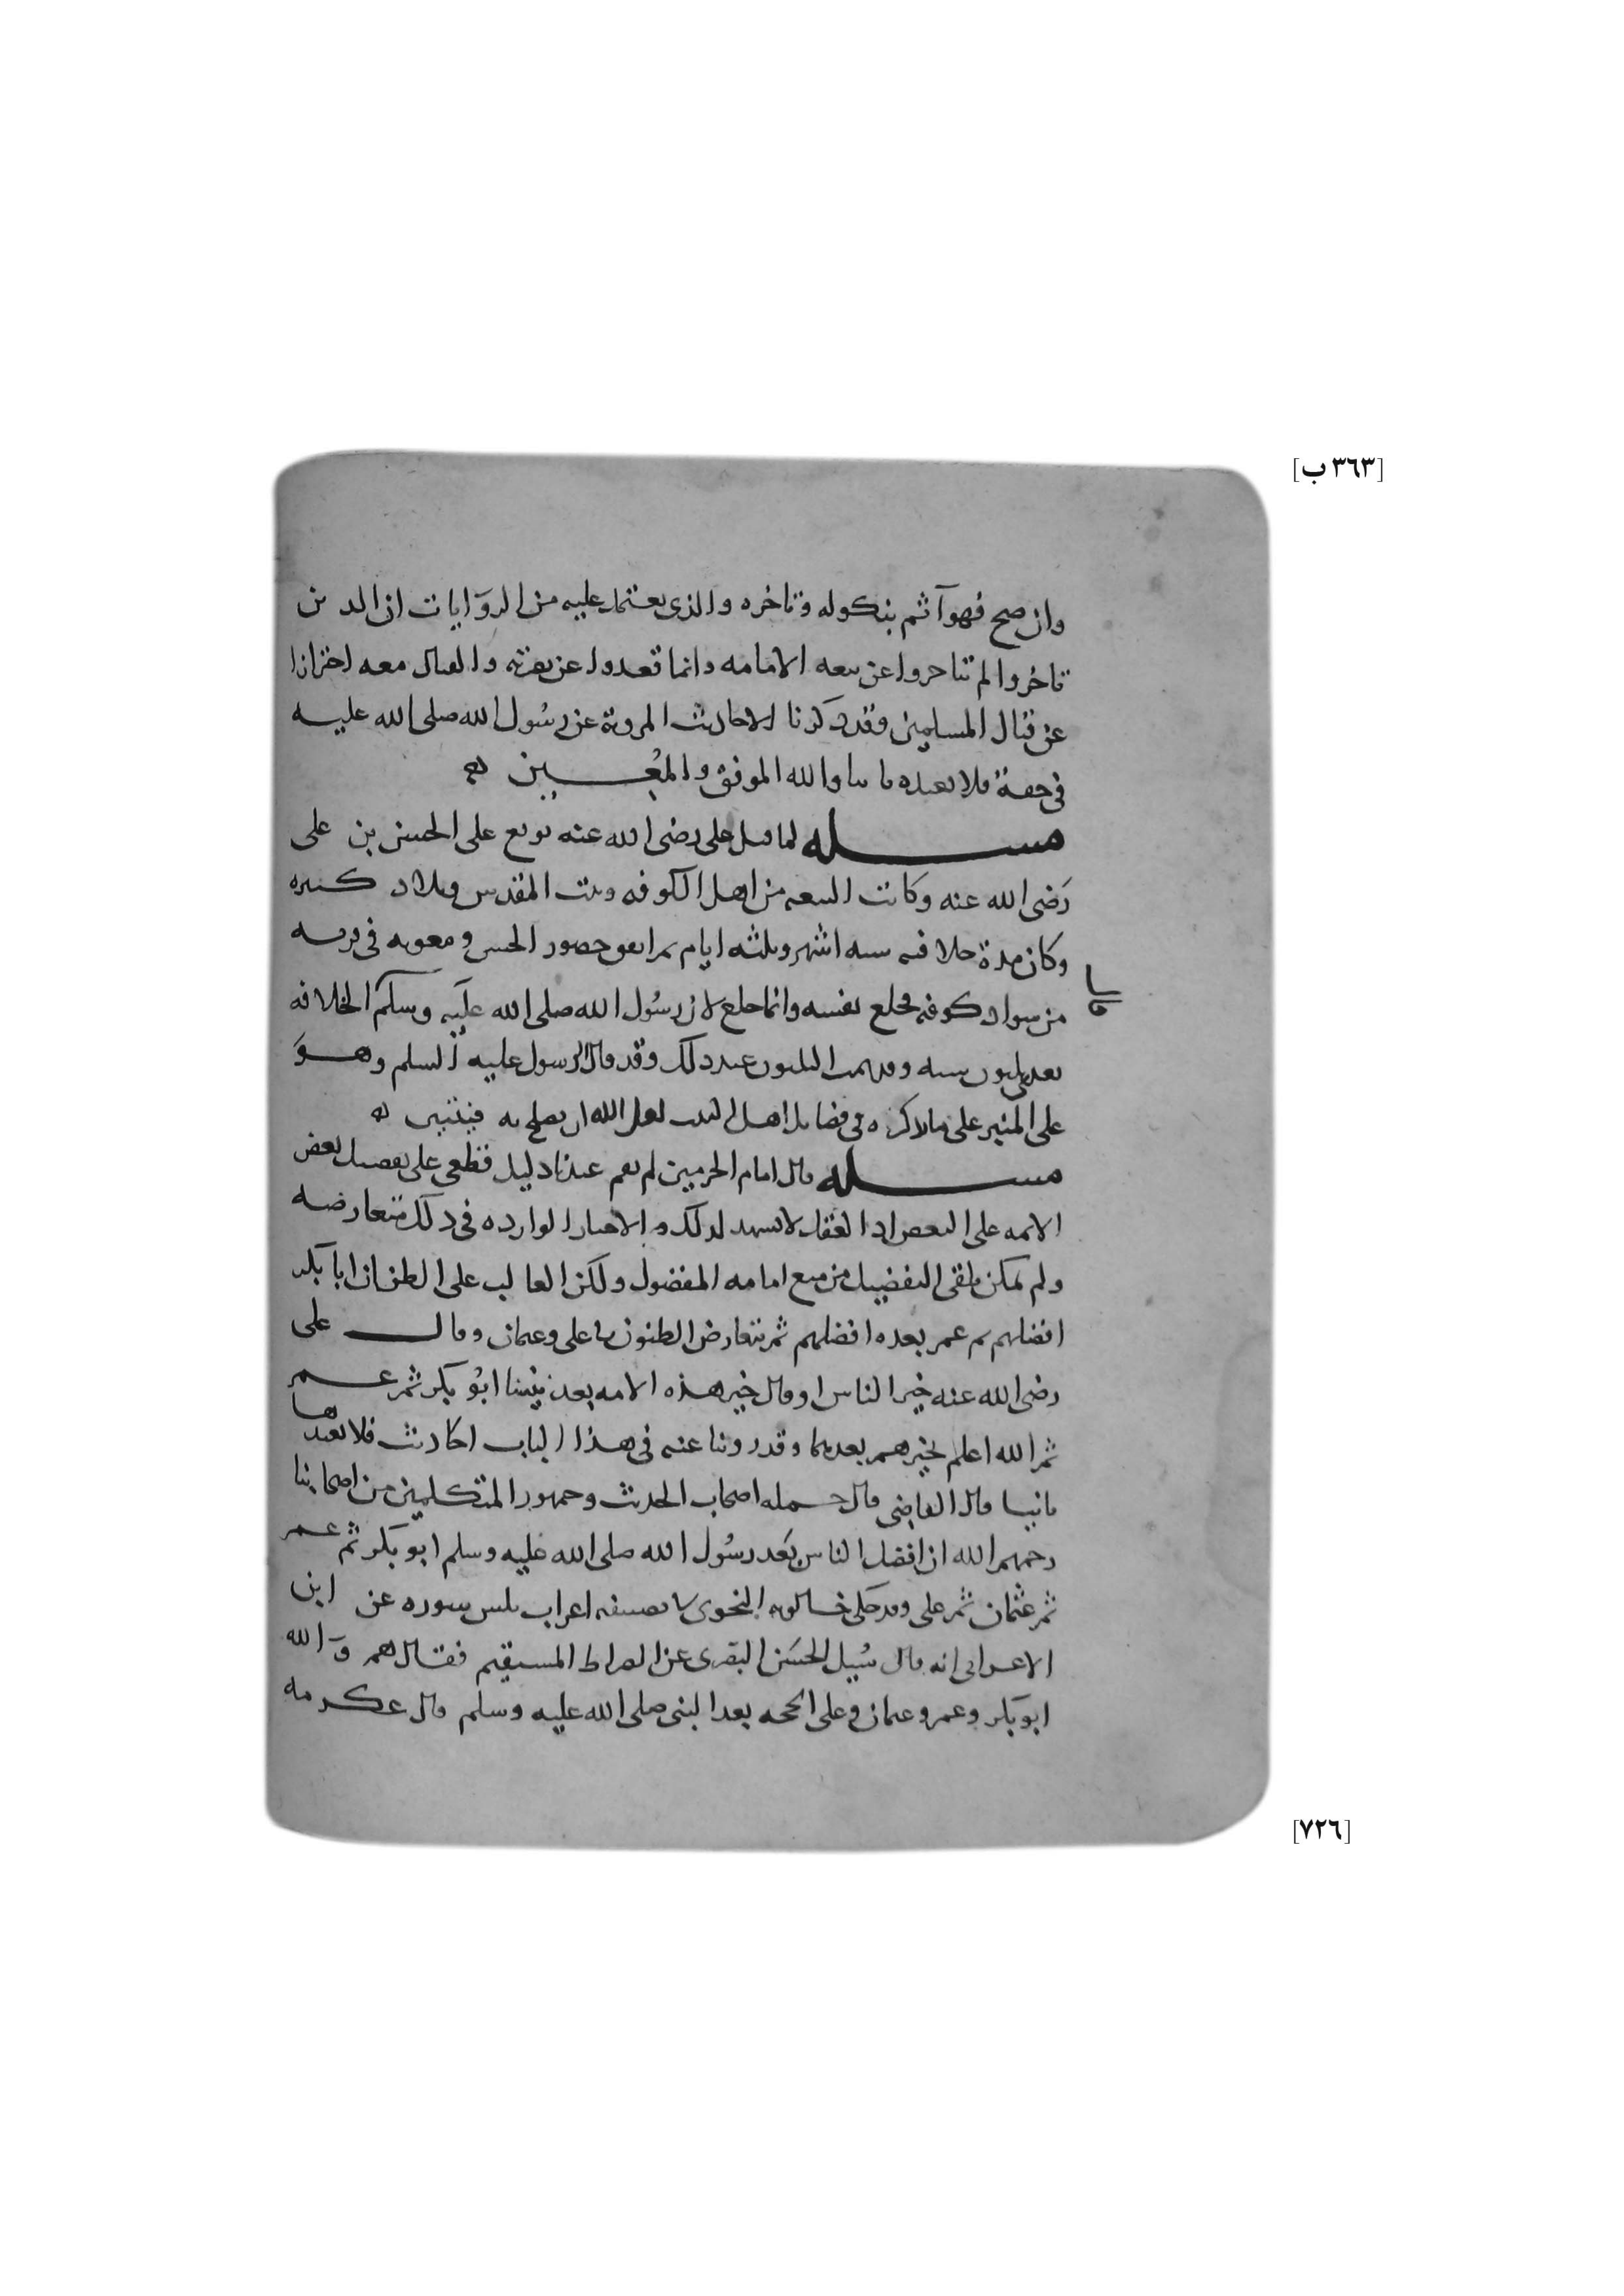 [٣٦٣ ب]
وان صح فهو آثم بنكوله وتاخره والذي يعتمد عليه من الروايات ان الذين
تاخروا لم يتاخروا عن بيعه الامامه وانما قعدوا عن نصرته والقتال معه احترازا
عن قتال المسلمين وقد ذكرنا الاحاديث المروية عن رسول الله صلى الله عليه
في حقه فلا نعيده ثانيا والله الموفق والمعين
مسله لما قتل علي رضي الله عنه بويع على الحسن بن علي
رضي الله عنه وكانت البيعه من اهل الكوفه وبيت المقدس وبلاد كثيره
وكان مدة خلافته سته اشهر وثلثه ايام ثم اتفق حضور الحسن ومعويه في قريه
من سواد كوفه فخلع نفسه وانما خلع لان رسول الله صلى الله عليه وسلم الخلافه
بعدي ثلثون سنه وقد تمت الثلثون عند ذلك وقد قال الرسول عليه السلم وهو
على المنبر على ما ذكره في فضايل اهل البيت لعل الله ان يصلح به فيتين
مسله قال امام الحرمين لم يقم عندنا دليل قطعي على تفضيل بعض
الايمه على البعض اذ العقل لا يشهد لذلك والاخبار الوارده في ذلك متعارضه
ولم يمكن تلقي التفضيل من منع امامه المفضول ولكن الغالب على الظن ان ابا بكر
افضلهم ثم عمر بعده افضلهم ثم تتعارض الظنون في علي وعثمان وقال علي
رضي الله عنه خير الناس او قال خير هذه الامه بعد نبينا ابو بكر ثم عمر
ثم الله اعلم بخيرهم بعدهما وقد روينا عنه في هذا الباب احاديث فلا نعيدها
ثانيا قال القاضي قال جمله اصحاب الحديث وجمهور المتكلمين من اصحابنا
رحمهم الله ان افضل الناس بعد رسول الله صلى الله عليه وسلم ابو بكر ثم عمر
ثم عثمان ثم علي وقد حكى خالويه النحوي في تصنيفه اعراب ثلثين سوره عن ابن
الاعرابي انه قال سيل الحسن البصري عن الصراط المستقيم فقال هم والله
ابو بكر وعمر وعثمان وعلي الحجه بعد النبي صلى الله عليه وسلم قال عكرمه
[٧٢٦]